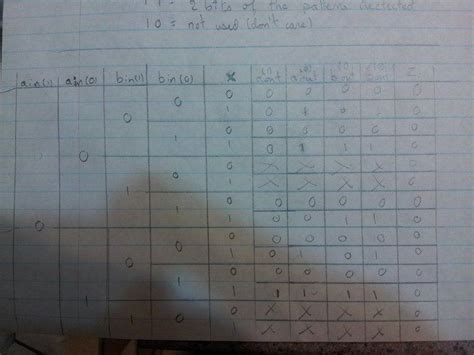 11 = 2 bits of the pattern dectected
10 = not used (don't care)
ain(1) ain(0) bin(1) bin(0) X aout aout bout bout Z
0 0 0 0 0 0
1 0 0 0
0 1 0 0 0 0 0 0
0 1 0 1 1 1 0
0 0 X X X X
1 0 1 X X X X
0 0 0 0 0 0
1 1 0 0 1 1 0
0 0 0 0 0 0 0
0 1 0 1 0 1 0
0 0 0 0 0 0
1 1 1 1 1 1 0
1 0 0 X X X X
1 X X X X